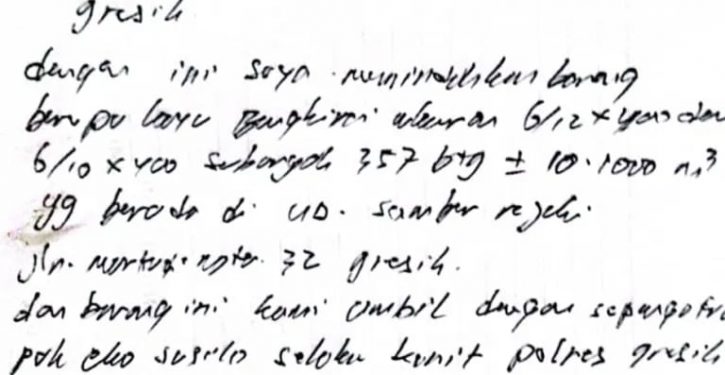 gresik
dengan ini saya memindahkan barang
berupa kayu Bengkirai ukuran 6/12 x 400 dan
6/10 x 400 sebanyak 357 btg ± 10.1000 m³
yg berada di UD. Sumber rejeki
jln. 32 gresik.
dan barang ini kami ambil dengan sepenget
pak eko susilo selaku kanit polres gresik